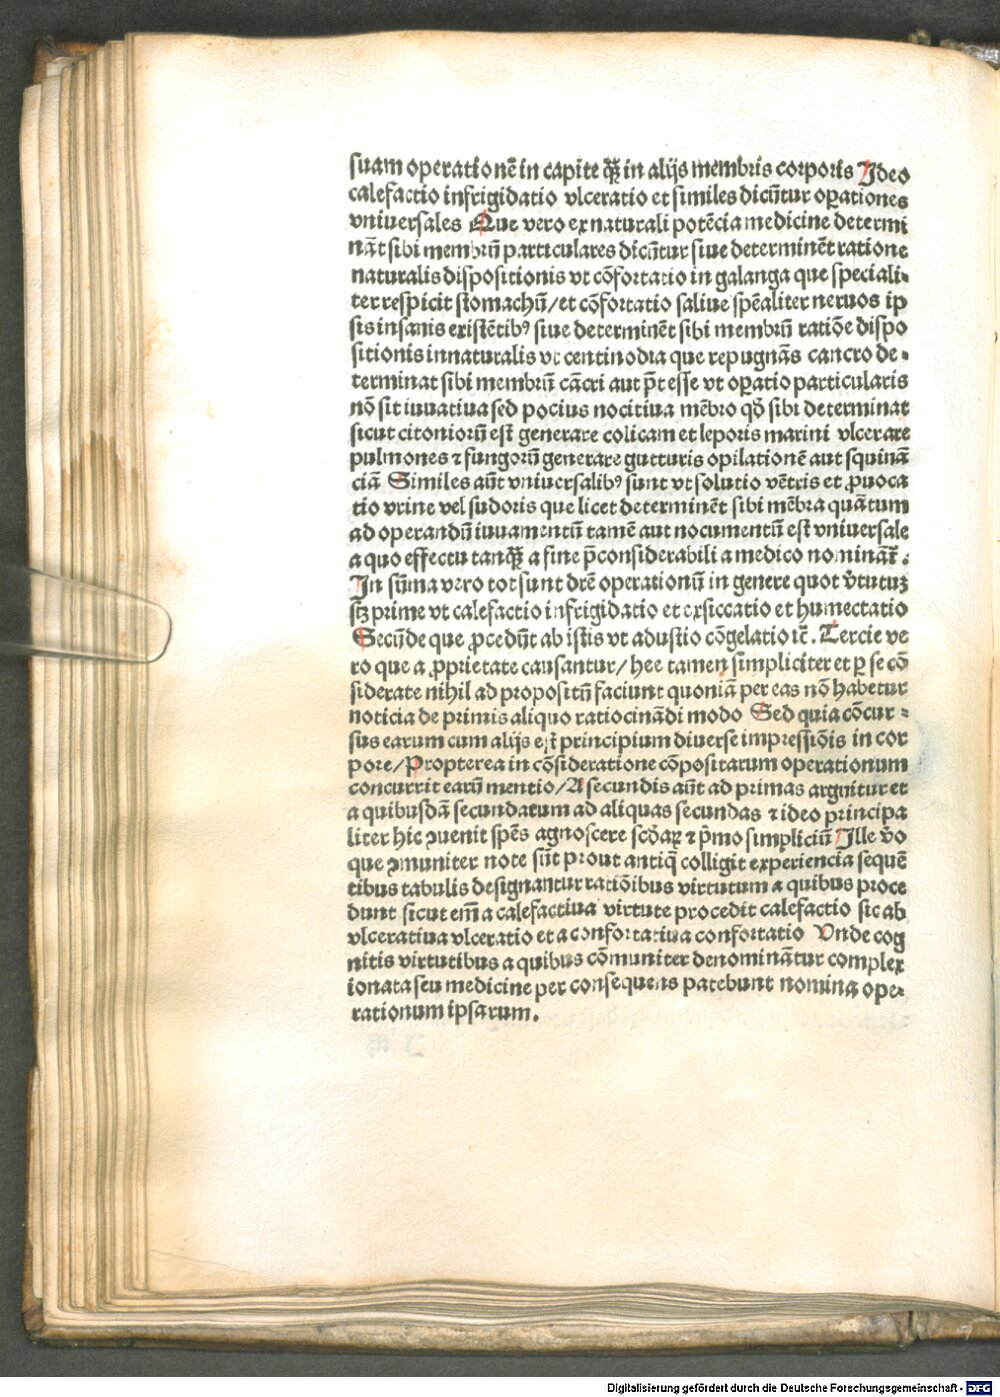 suam operationē in capite q̄ꝫ in alijs membris corporis Ideo
calefactio infrigidatio vlceratio et similes dicūtur oꝑationes
vniuersales Que vero ex naturali potēcia medicine determi
nāt sibi membrū particulares dicūtur siue determinēt ratione
naturalis dispositionis vt cōfortatio in galanga que speciali⸗
ter respicit stomachū/et cōfortatio saluie spēaliter neruos ip
sis insanis existētibꝰ siue determinēt sibi membrū ratiōe dispo
sitionis innaturalis vt centinodia que repugnās cancro de⸗
terminat sibi membrū cācri aut p̄t esse vt oꝑatio particularis
nō sit iuuatiua sed pocius nocitiua mēbro qḋ sibi determinat
sicut citoniorū est generare colicam et leporis marini vlcerare
pulmones ⁊ fungorū generare gutturis opilationē aut squinā
ciā Similes aūt vniuersalibꝰ sunt vt solutio vētris et ꝓuoca
tio vrine vel sudoris que licet determinēt sibi mēbra quātum
ad operandū iuuamentū tamē aut nocumentū est vniuersale
a quo effectu tanq̄ꝫ a fine p̄considerabili a medico nominat̄.
In sūma vero tot sunt drē operationū in genere quot v̄tutuꝫ
sꝫ prime vt calefactio infrigidatio et exsiccatio et humectatio
Secūde que ꝓcedūt ab istis vt adustio cōgelatio ⁊c̄. Tercie ve
ro que a ꝓprietate causantur/hee tamen simpliciter et ꝑ se cō
siderate nihil ad propositū faciunt quoniā per eas nō habetur
noticia de primis aliquo ratiocinādi modo Sed quia cōcur⸗
sus earum cum alijs est principium diuerse impressiōis in cor
pore/Propterea in cōsideratione cōpositarum operationum
concurrit earū mentio/A secundis aūt ad primas arguitur et
a quibusdā secundarum ad aliquas secundas ⁊ ideo principa
liter hic ↄuenit spēs agnoscere scḋaꝝ ⁊ p̄mo simpliciū Ille v̄o
que ↄmuniter note sūt prout antiq̄ colligit experiencia sequē
tibus tabulis designantur ratiōibus virtutum a quibus proce
dunt sicut em̄ a calefactiua virtute procedit calefactio sic ab
vlceratiua vlceratio et a confortatiua confortatio Vnde cog
nitis virtutibus a quibus cōmuniter denominātur complex
ionata seu medicine per consequens patebunt nomina ope⸗
rationum ipsarum.
Digitalisierung gefördert durch die Deutsche Forschungsgemeinschaft - DFG